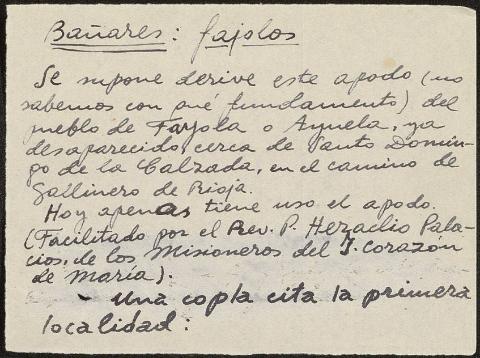 Bañares: fajolos
Se supone derive este apodo (no
sabemos con qué fundamento) del
pueblo de Fayola o Ayuela, ya
desaparecido cerca de Santo Domin-
go de la Calzada, en el camino de
Gallinero de Rioja.
Hoy apenas tiene uso el apodo.
(Facilitado por el Rev. P. Heraclio Pala-
cios, de los Misioneros del I. Corazón
de María).
- Una copla cita la primera
localidad: